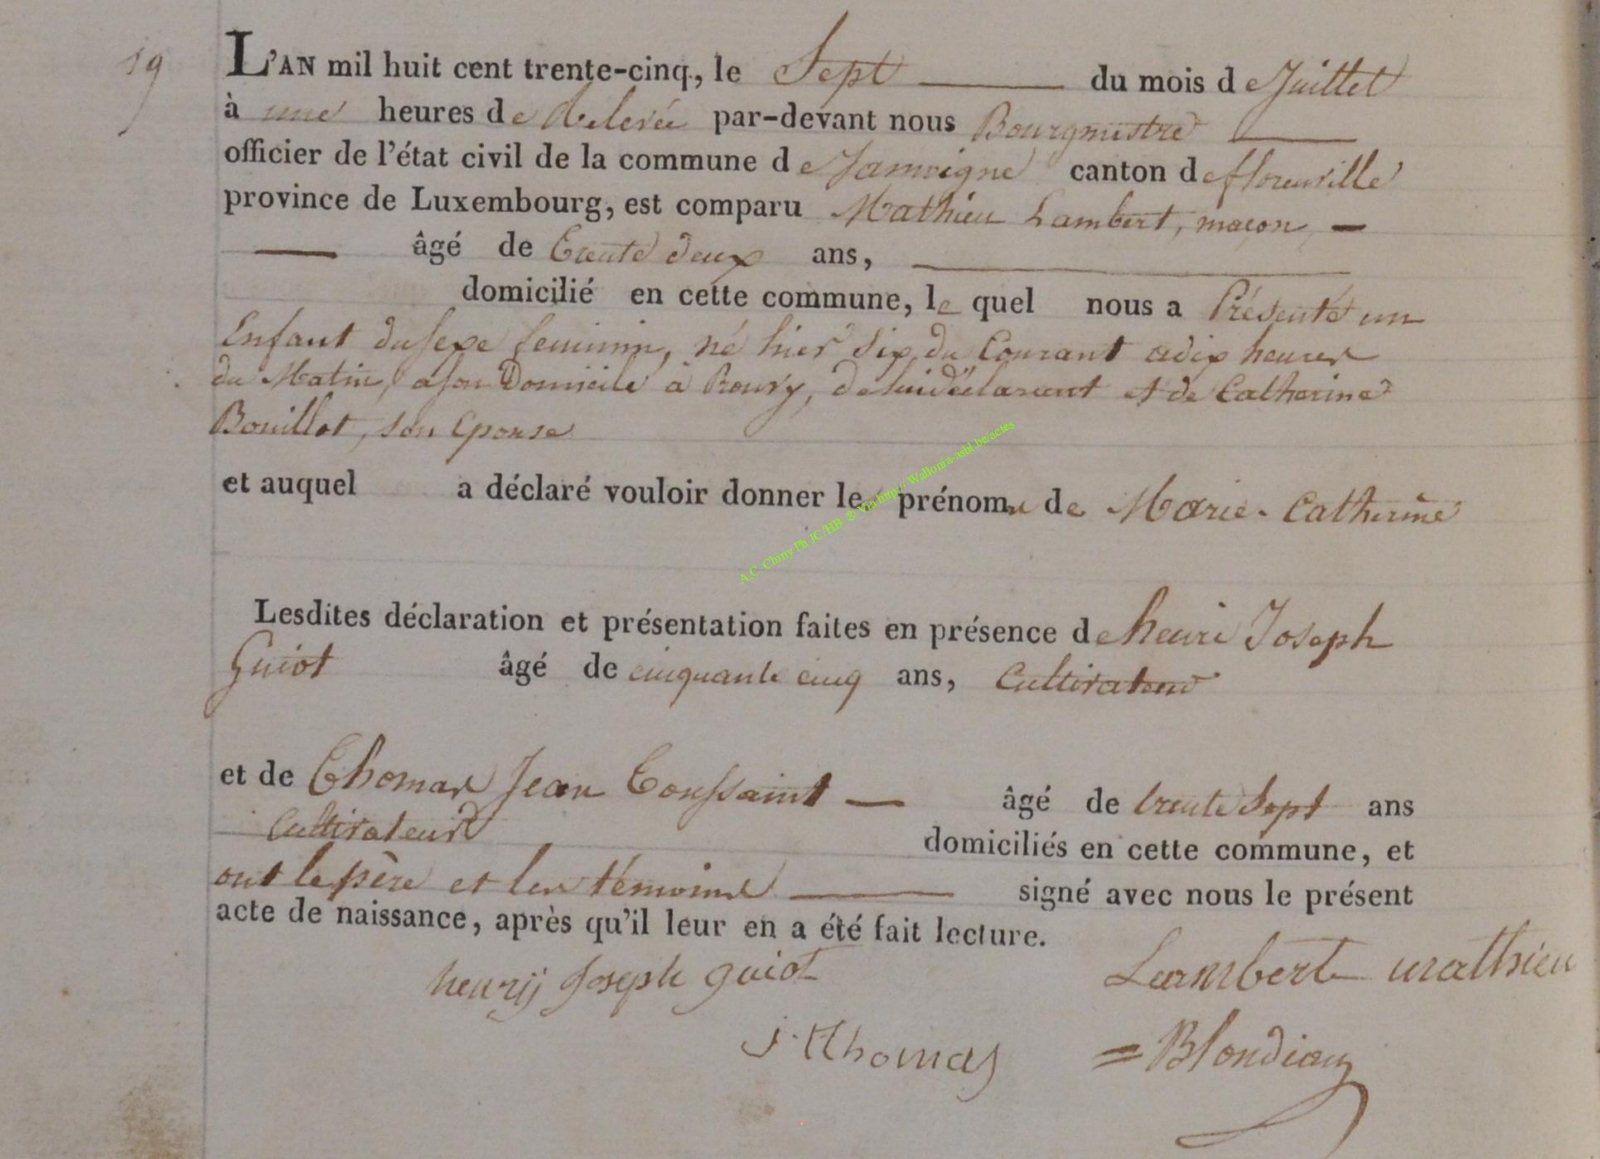 19
L'AN mil huit cent trente-cinq, le Sept du mois de Juillet
à une heures de Relevée par-devant nous Bourgmestre
officier de l'état civil de la commune de Jamoigne canton de florenville
province de Luxembourg, est comparu Mathieu Lambert, maçon,
âgé de trente deux ans,
domicilié en cette commune, le quel nous a Présenté un
Enfant du sexe feminin, né hier six du Courant a dix heures
du Matin, a son Domicile à Prouvy, de lui déclarant et de Catherine
Bouillot, son Epouse
et auquel a déclaré vouloir donner les prénoms de Marie-Catherine
A.C. Chiny Ph JC/HB & Via http://Wallonia-asbl.be/actes
Lesdites déclaration et présentation faites en présence de henri Joseph
Guiot âgé de cinquante cinq ans, Cultivateur
et de Thomas Jean Toussaint âgé de trente Sept ans
Cultivateur domiciliés en cette commune, et
ont le père et les témoins signé avec nous le présent
acte de naissance, après qu'il leur en a été fait lecture.
henrij Joseph guiot Lambert mathieu
J. Thomas = Blondiau